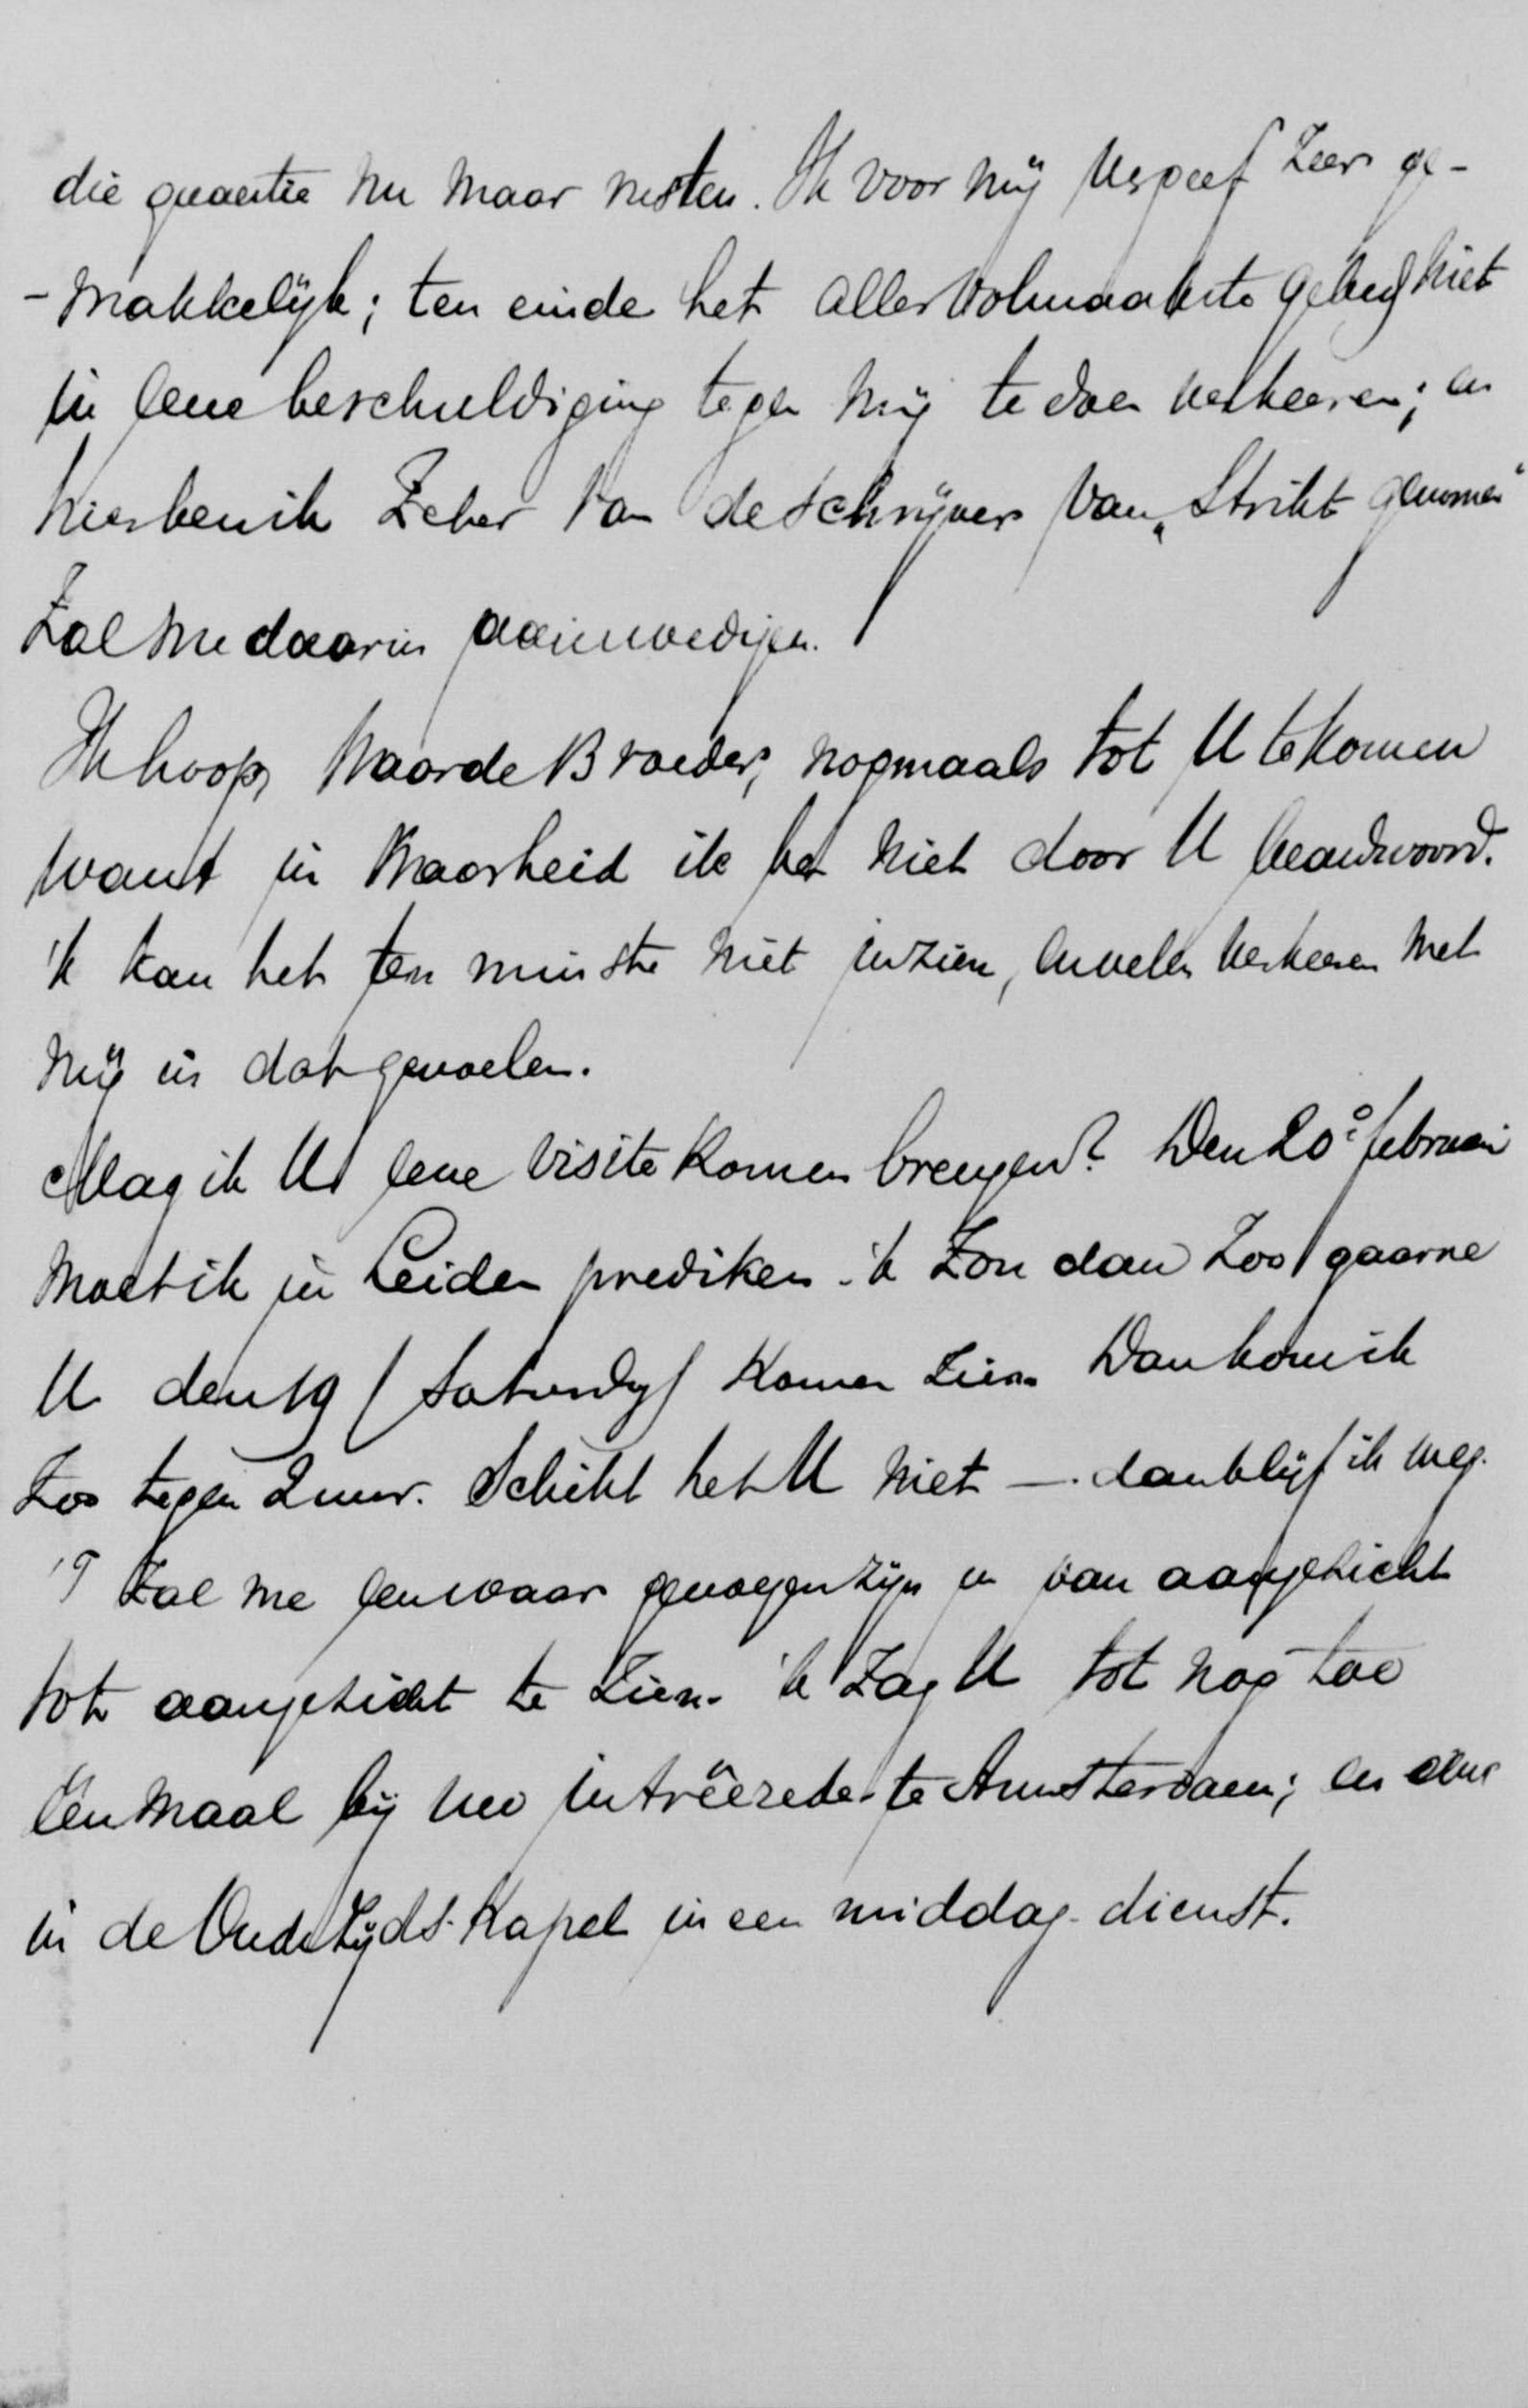 die quaestie nu maar rusten. Ik voor mij vergeef zeer ge-
-makkelijk; ten einde het allervolmaakste gebed niet
in eene beschuldiging tegen mij te doen verkeeren; en
hier ben ik zeker van de schrijver van „Strikt genomen"
zal me daarin aanmoedigen.
Ik hoop, Waarde Broeder, nogmaals tot U te komen
want in waarheid ik ben niet door U beantwoord.
'k kan het ten minste niet inzien, en velen verkeeren met
mij in dat gevoelen.
Mag ik U eene visite komen brengen? Den 20e februari
moet ik in Leiden prediken. 'k zou dan zoo gaarne
U den 19 (Saturdag) komen zien. Dan kom ik
zoo tegen 2 uur. Schikt het U niet — dan blijf ik weg.
'T zal me een waar genoegen zijn U van aangezicht
tot aangezicht te zien. 'k zag U tot nog toe
éénmaal bij uw intrêerede te Amsterdam; en eens
in de Oude Zijds-Kapel in een middag-dienst.